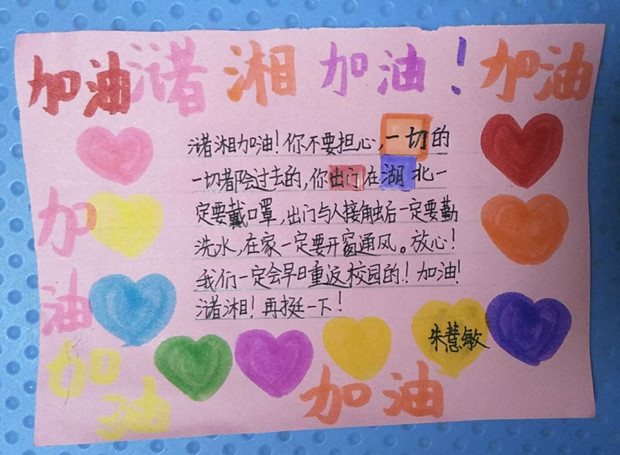 加油潴湘加油！加油
潴湘加油！你不要担心，一切的
一切都会过去的，你出门在湖北一
定要戴口罩，出门与人接触后一定要勤
洗水，在家一定要开窗通风。放心！
我们一定会早日重返校园的！加油！
潴湘！再挺一下！
朱慧敏
加
油
加
油
加油